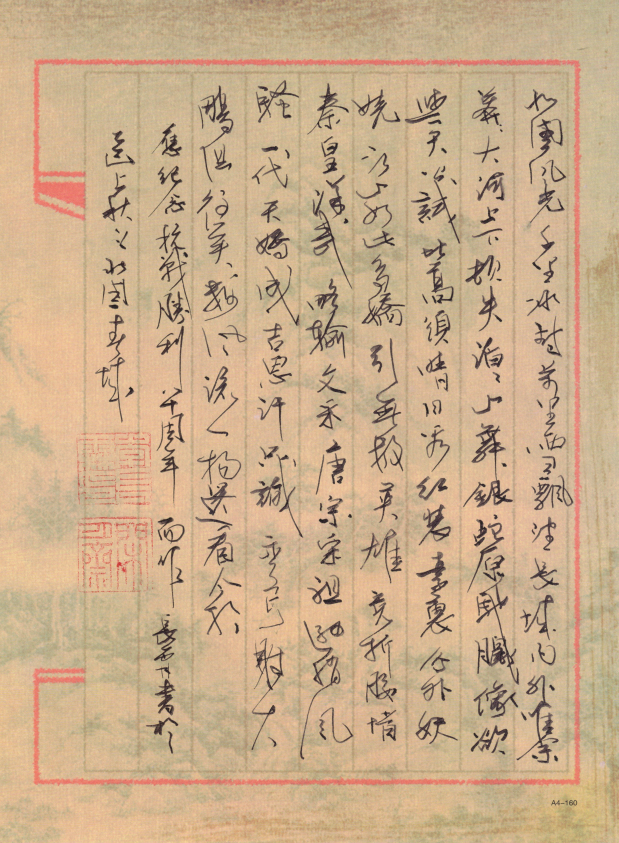 北国风光千里冰封万里雪飘望长城内外唯余
莽莽大河上下顿失滔滔山舞银蛇原驰腊像欲
与天公试比高须晴日看红装素裹分外妖
娆江山如此多娇引无数英雄竞折腰惜
秦皇汉武略输文采唐宗宋祖稍逊风
骚一代天骄成吉思汗只识弯弓射大
雕俱往矣数风流人物还看今朝
纪念抗戰勝利八十周年而作
書於
北国春城
A4-160